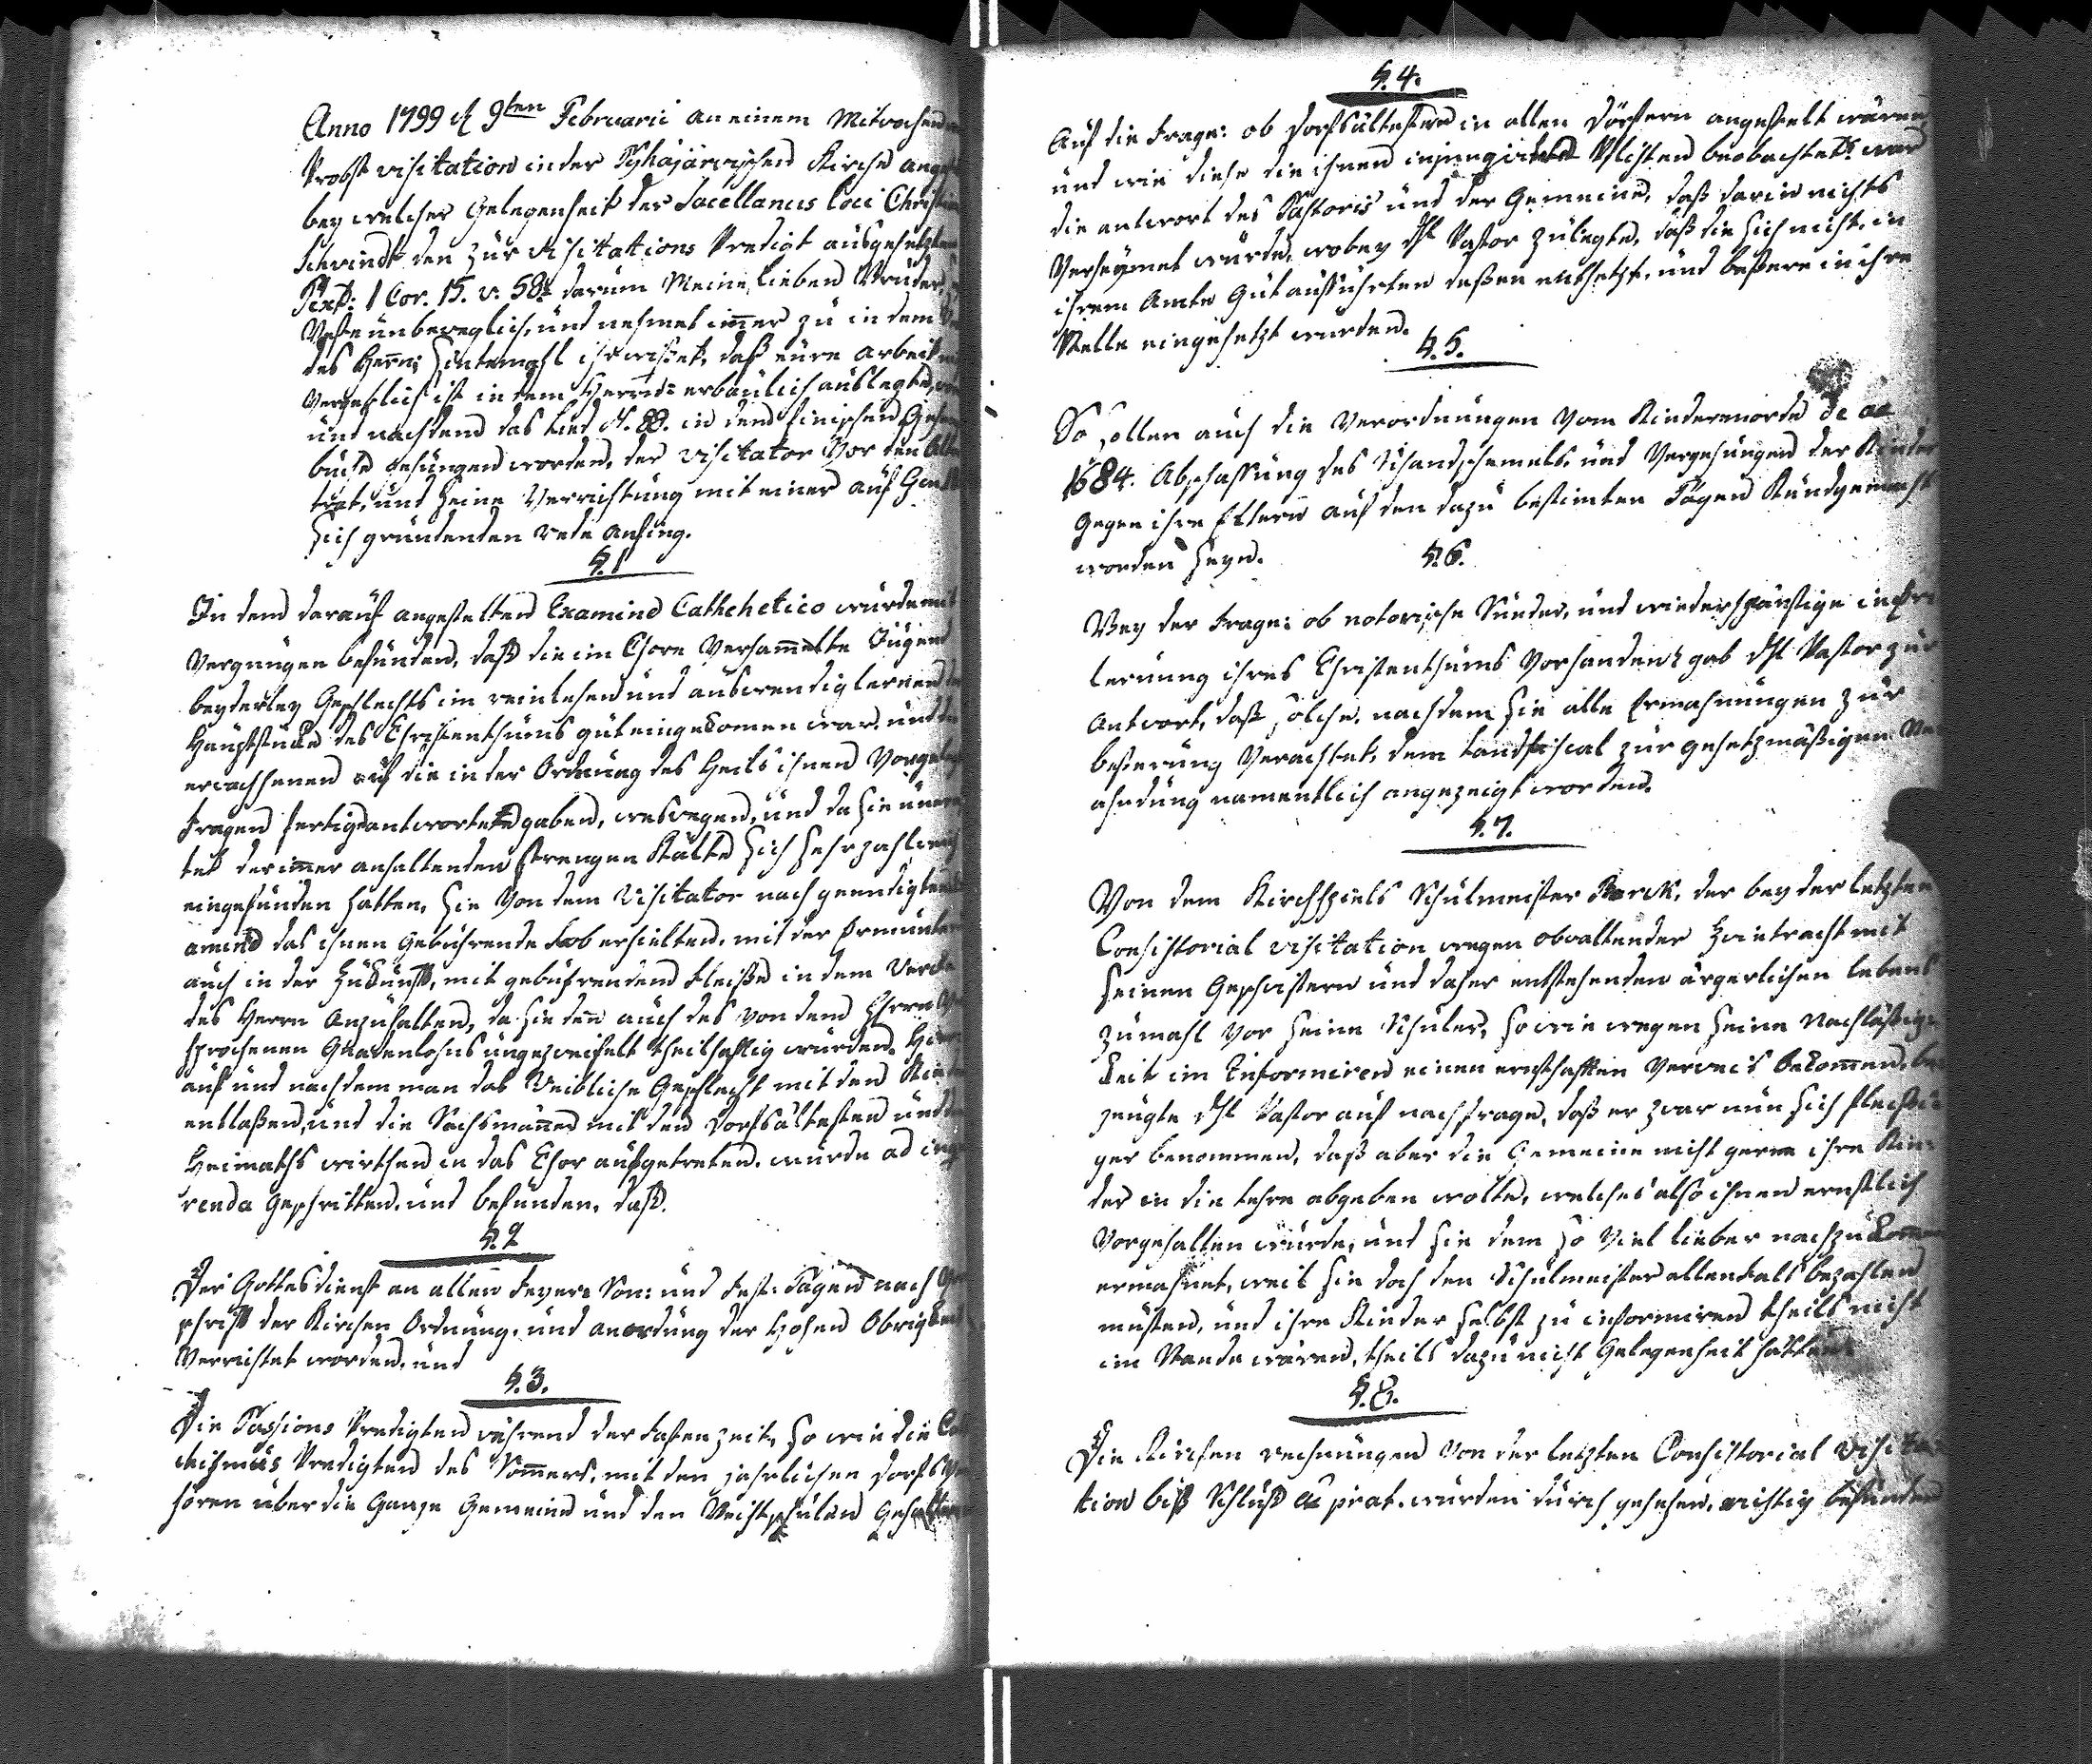 Anno 1799 d 9ten Februarii an einem Mitwochen
Probst visitation in der Pyhäjärwischen Kirche
bey welcher Gelegenheit der Sacellanus loci
Schvindt den zur visitations Predigt ausgesetzten
Text: 1 Cor. 15. v. 58: darum Meine lieben Brüder,
Veste unbeweglich, und nehmet imer zu in dem
des Herrn; Sintemahl ihr wisset, daß eure arbeit
vergeblich ist in dem Herrn: erbaulich auslegte,
und nachdem das Lied N. 88. in dem finischen
buche gesungen worden, der visitator vor den
trat, und seine Verrichtung mit einer auf
sich gründenden rede anfing.
§. 1
In dem darauf angestelten Examine Cathehetico wurde mit
Vergnügen befunden, daß die im Chore Versammelte Jugend
beyderley Geschlechts im reinlesen und auswendig lernen
Hauptstücke des Christenthums gut eingekomen war. und
erwachsenen auf die in der Ordnung des Heils ihnen
Fragen fertige antworten gaben, weswegen, und da sie
tet der imer anhaltenden strengen Kälte sich sehr zahlreich
eingefunden hatten, sie von dem Visitator nach geendigten
amine das ihnen gebührende Lob erhielten, mit der
auch in der Zukunft, mit gebührendem Fleiße in dem
des Herrn anzuhalten, da sie denn auch des von dem Herrn
sprochenen Gnadenlohns ungezweifelt theilhaftig würden.
auf und nachdem man das Weibliche Geschlecht mit den
entlaßen, und die Sechsmäner mit den Dorfsältesten und
Heimaths wirthen in das Chor aufgetreten. wurde ad
renda geschritten. und befunden, daß.
§. 2
Der Gottesdienst an allen Feyer: Son: und Fest: Tagen nach
schrift der Kirchen Ordnung, und anordung der Hohen Obrigkeit
Verrichtet worden, und
§. 3.
Die Passions Predigten während der Fastenzeit, so wie die
chismus Predigten des Sommers, mit den jahrlichen
hören über die ganze Gemeine und den Beichtschulen
§. 4.
Auf die Frage: ob Dorfsältesten in allen Dörfern angestelt wären
und wie diese die ihnen injungirten Pflichten beobachteten war
die antwort des Pastoris und der Gemeine, daß darin nichts
Verseumet würde, wobey H Pastor zulegte, daß die sich nicht, in
ihrem Amte gut aufführten deßen entsetzt, und beßere in ihre
Stelle eingesetzt würden.
§. 5.
So sollen auch die Verordnungen vom Kindermorde de ao
1684. Abschaffung des Schandschemels, und Vergehungen der Kinder
gegen ihre Eltern auf den dazu bestimten Tagen Kundgemacht
worden seyn.
§. 6.
Bey der Frage: ob notorische Sünder, und wiederspänstige in
lernung ihres Christenthums Vorhanden? gab H Pastor zur
Antwort, daß solche, nachdem sie alle Ermahnungen zur
beßerung Verachtet, dem Landfiscal zur gesetzmäßigen
ahndung namentlich angezeigt worden.
§. 7.
Von dem Kirchspiels Schulmeister Borck, der bey der letzten
Consistorial visitation wegen obwaltender Zwietracht mit
seinen Geschwistern und daher entstehenden ärgerlichen lebens
zumahl vor seine Schüler, so wie wegen seine Nachläßig
keit im Informiren einen ernsthaften Verweis bekommen,
zeugte H Pastor auf nachfrage, daß er zwar nun sich fleißi
ger benommen, daß aber die Gemeine nicht gerne ihre Kin:
der in die lehre abgeben wolte, welches also ihnen ernstlich
Vorgehalten wurde, und sie dem so viel lieber nachzukommen
ermahnet, weil sie doch den Schulmeister allenfals bezahlen
müsten, und ihre Kinder selbst zu informiren theils nicht
im Stande wären, theils dazu nicht Gelegenheit hätten
§. 8.
Die Kirchen rechnungen von der letzten Consistorial visita:
tion biß Schluß a prat. wurden durch gesehen, richtig befunden